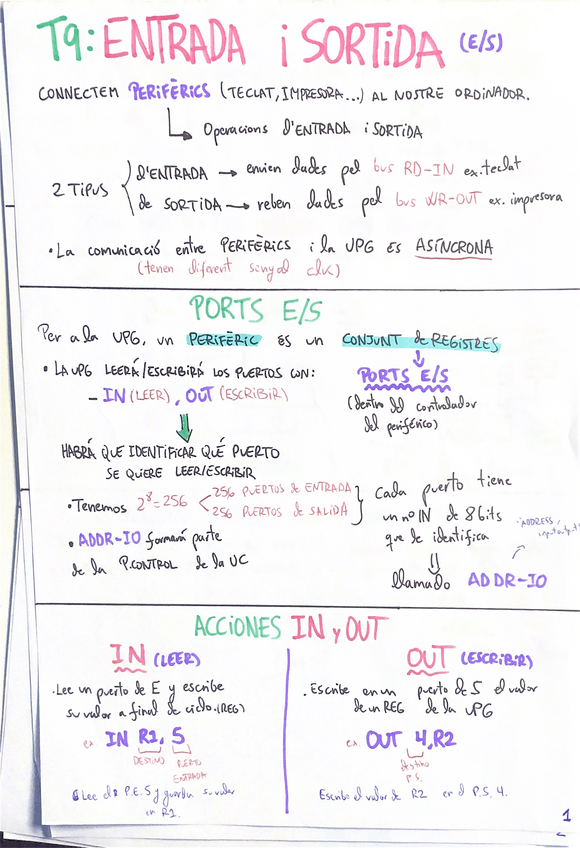 T9: ENTRADA i SORTIDA (E/S)
CONNECTEM PERIFÈRICS (TECLAT, IMPRESORA...) AL NOSTRE ORDINADOR.
Operacions D'ENTRADA i SORTIDA
2 TIPUS
D'ENTRADA → envien dades pel bus RD-IN ex. teclat
de SORTIDA → reben dades pel bus WR-OUT ex. impresora
· La comunicació entre PERIFÈRICS i la UPG ES ASÍNCRONA
(tenen diferent senyal clk)
PORTS E/S
Per a la UPG, un PERIFÈRIC és un CONJUNT de REGISTRES
PORTS E/S
(dentro del controlador
del periférico)
· LA UPG LEERÁ/ESCRIBIRÁ LOS PUERTOS CON:
- IN (LEER), OUT (ESCRIBIR)
HABRÁ QUE IDENTIFICAR QUÉ PUERTO
SE QUIERE LEER/ESCRIBIR
· Tenemos 2⁸=256
256 PUERTOS de ENTRADA
256 PUERTOS de SALIDA
Cada puerto tiene
un nº IN de 8 bits
que le identifica
llamado ADDR-IO
· ADDRESS
input output
· ADDR-IO formará parte
de la P.CONTROL de la UC
ACCIONES IN y OUT
IN (LEER)
· Lee un puerto de E y escribe
su valor a final de ciclo. (REG)
ex. IN R1, 5
DESTINO PUERTO
ENTRADA
Lee el P.E. 5 y guarda su valor
en R1.
OUT (ESCRIBIR)
· Escribe en un puerto de S el valor
de un REG de la UPG
ex. OUT 4, R2
destino
P.S.
Escribe el valor de R2 en el P.S. 4.
1